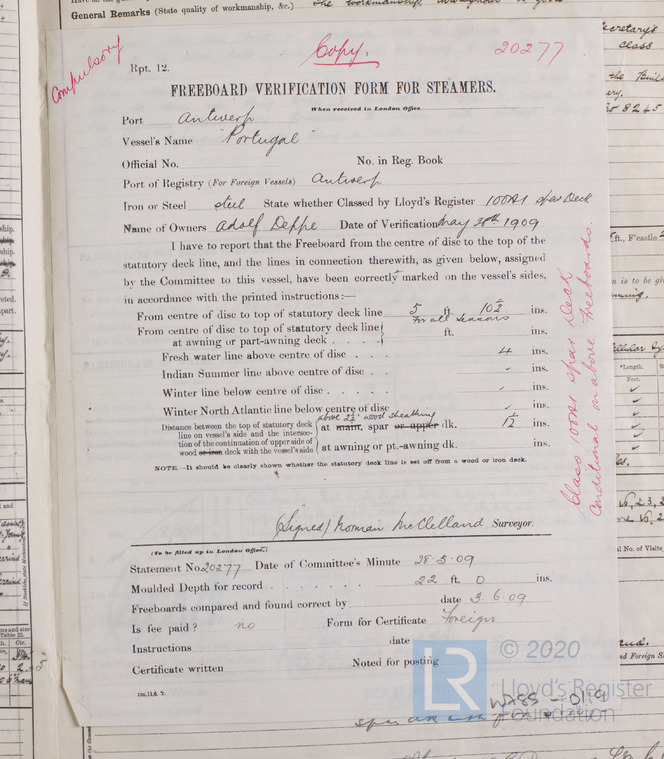 General Remarks (State quality of workmanship, &c.) The workmanship throughout is good
Compulsory
Copy.
20277
Rpt. 12.
FREEBOARD VERIFICATION FORM FOR STEAMERS.
When received in London Office
Port Antwerp
Vessel's Name "Portugal"
Official No. No. in Reg. Book
Port of Registry (For Foreign Vessels) Antwerp
Iron or Steel steel State whether Classed by Lloyd's Register 100A1 Spar Deck
Name of Owners Adolf Deppe Date of Verification May 28th 1909
I have to report that the Freeboard from the centre of disc to the top of the
statutory deck line, and the lines in connection therewith, as given below, assigned
by the Committee to this vessel, have been correctly marked on the vessel's sides,
in accordance with the printed instructions:—
From centre of disc to top of statutory deck line 5 ft. 10½ ins.
For all seasons
From centre of disc to top of statutory deck line
at awning or part-awning deck . . . . . ft. ins.
Fresh water line above centre of disc . . . 4 ins.
Indian Summer line above centre of disc . . ins.
Winter line below centre of disc . . . . . ins.
Winter North Atlantic line below centre of disc ins.
above 2½" wood sheathing
Distance between the top of statutory deck
line on vessel's side and the intersec-
tion of the continuation of upper side of
wood or iron deck with the vessel's side
at main, spar or upper dk. 1½ ins.
at awning or pt.-awning dk. ins.
NOTE.—It should be clearly shown whether the statutory deck line is set off from a wood or iron deck.
Class 100A1 Spar Deck
Conditional on above Freeboards.
(Signed) Norman McClelland Surveyor.
(To be filled up in London Office.)
Statement No 20277 Date of Committee's Minute 28·5·09
Moulded Depth for record . . . . . . . 22 ft. 0 ins.
Freeboards compared and found correct by date 3.6.09
Is fee paid ? no Form for Certificate Foreign
Instructions date
Certificate written Noted for posting
1m,11,6. T.
© 2020
LR
Lloyd's Register
Foundation
W288 - 0119